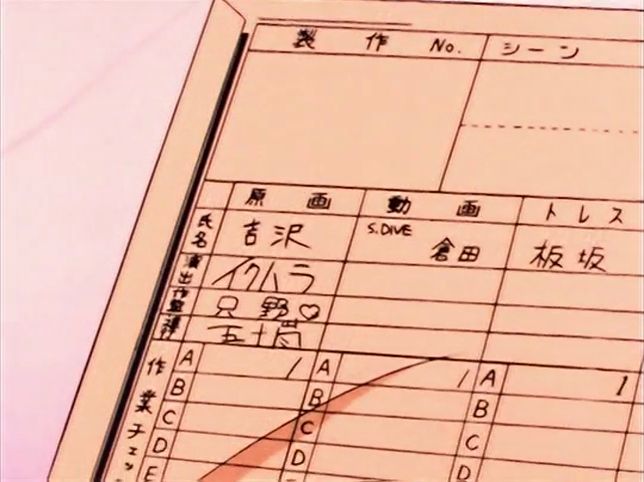 製作 No. シーン
原画 動画 トレス
氏名 吉沢 S.DIVE 倉田 板坂
演出 イクハラ
作監 只野♡
五十嵐
作業チェッ
A 1 A 1 A 1
B B B
C C C
D D D
E